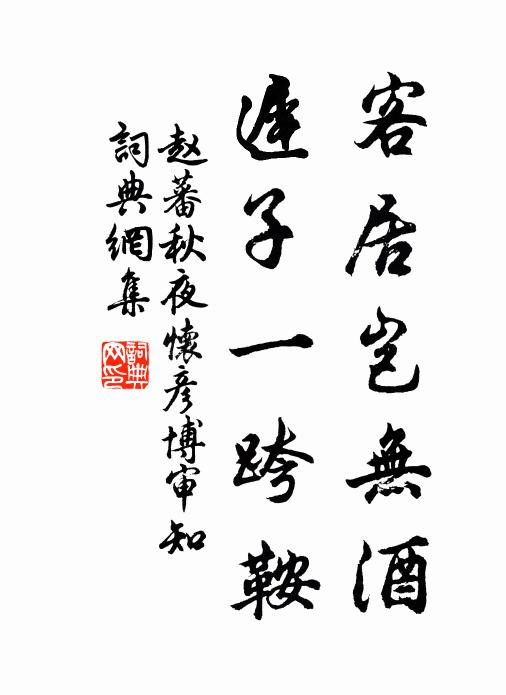 客居岂無酒
遲子一跨鞍
赵蕃秋夜懷彦博审知
詞典網集
詞典網印